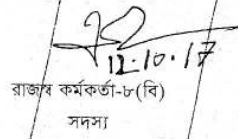 12.10.17
রাজস্ব কর্মকর্তা-৮(বি)
সদস্য